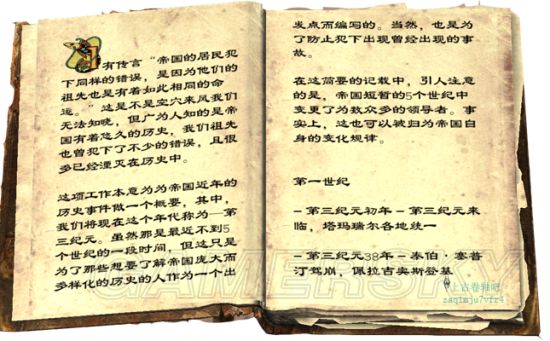 有传言“帝国的居民犯
下同样的错误，是因为他们的
祖先也是有着如此相同的命
运。”这是不是空穴来风我们
无法知晓，但广为人知的是帝
国有着悠久的历史，我们祖先
也曾犯下了不少的错误，且很
多已经湮灭在历史中。
这项工作本意为为帝国近年的
历史事件做一个概要，其中，
我们将现在这个年代称为—第
三纪元。虽然那是最近不到5
个世纪的一段时间，但这只是
为了那些想要了解帝国庞大而
多样化的历史的人作为一个出
发点而编写的。当然，也是为
了防止犯下出现曾经出现的事
故。
在这简要的记载中，引人注意
的是，帝国短暂的5个世纪中
变更了为致众多的领导者。事
实上，这也可以被归为帝国自
身的变化规律。
第一世纪
-第三纪元初年-第三纪元来
临，塔玛瑞尔各地统一
-第三纪元38年-泰伯·塞普
汀驾崩，佩拉吉奥斯登基
GAMERSKY
上古卷轴吧
zaq1mju7vfr4